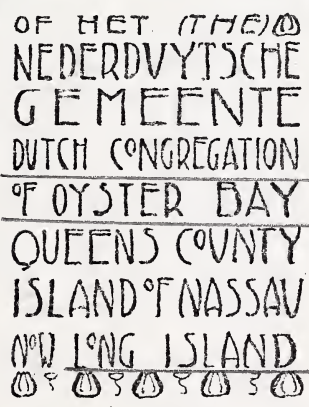 OF HET (THE)
NEDERDVYTSCHE
GEMEENTE
DUTCH CONGREGATION
OF OYSTER BAY
QUEENS COUNTY
ISLAND OF NASSAU
NOW LONG ISLAND